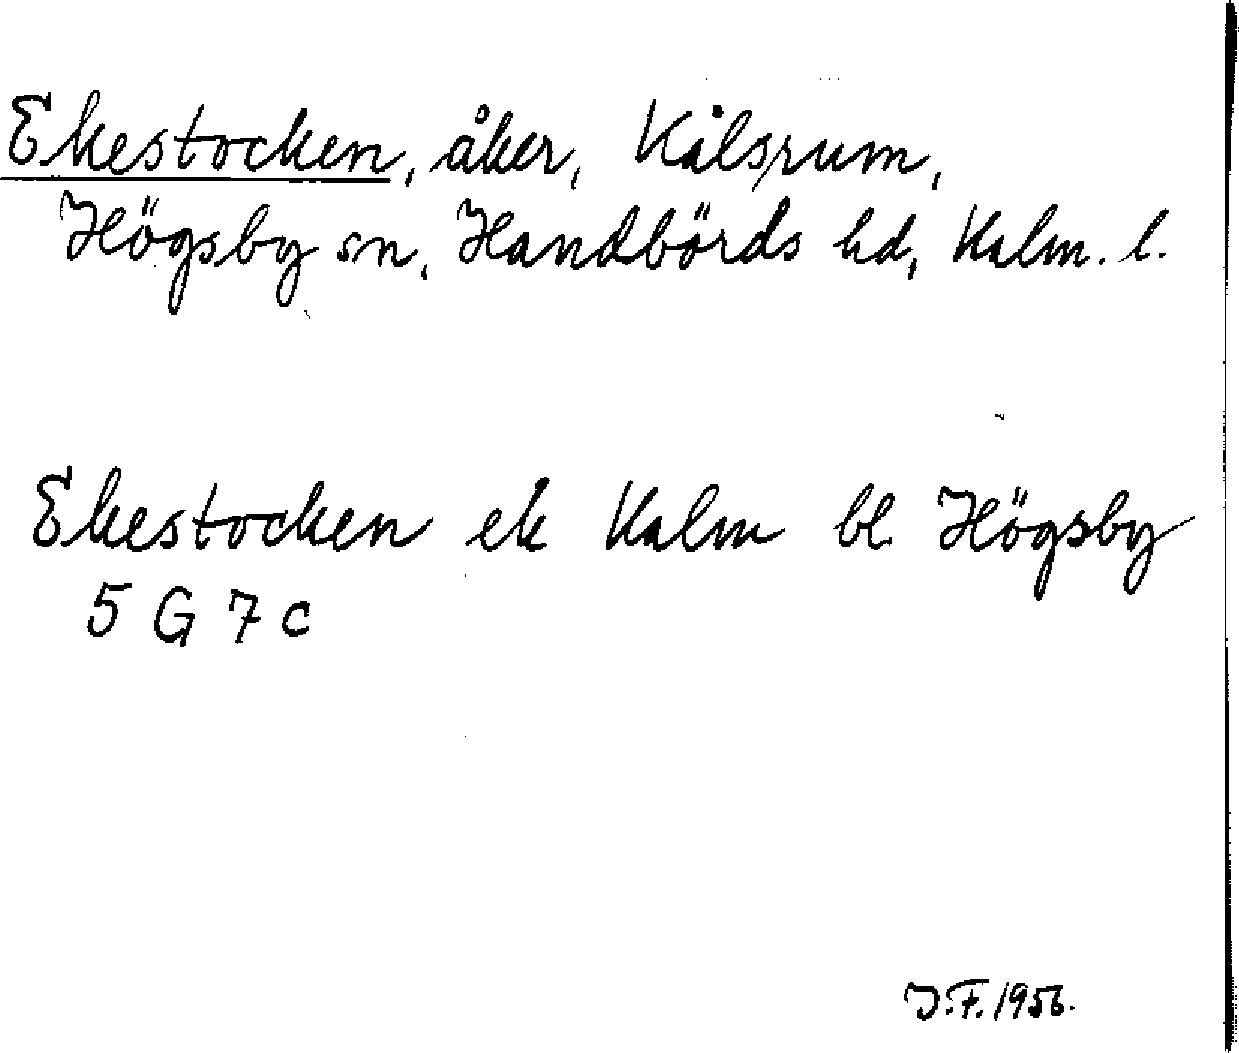 Ekestocken, åker, Kålsrum,
Högsby sn, Handbörds hd, Kalm. l.
Ekestocken ek Kalm bl Högsby
5 G 7 c
J.F. 1956.